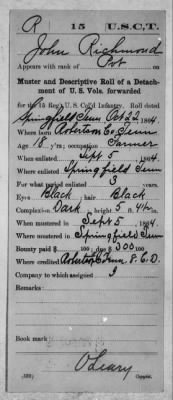 R 15 U.S.C.T.
John Richmond
Appears with rank of Pvt on
Muster and Descriptive Roll of a Detachment
of U. S. Vols. forwarded
for the 15 Reg't U. S. Col'd Infantry. Roll dated
Springfield Tenn Oct 22, 1864.
Where born Robertson Co, Tenn
Age 18 y'rs; occupation Farmer
When enlisted Sept 5, 1864.
Where enlisted Springfield Tenn
For what period enlisted 3 years.
Eyes Black; hair Black
Complexion Dark; height 5 ft. 4½ in.
When mustered in Sept 5, 1864.
Where mustered in Springfield Tenn
Bounty paid $ 100; due $ 300 100
Where credited Robertson Co Tenn 8. C.D.
Company to which assigned I
Remarks:
Book mark:
O'Leary
Copyist.